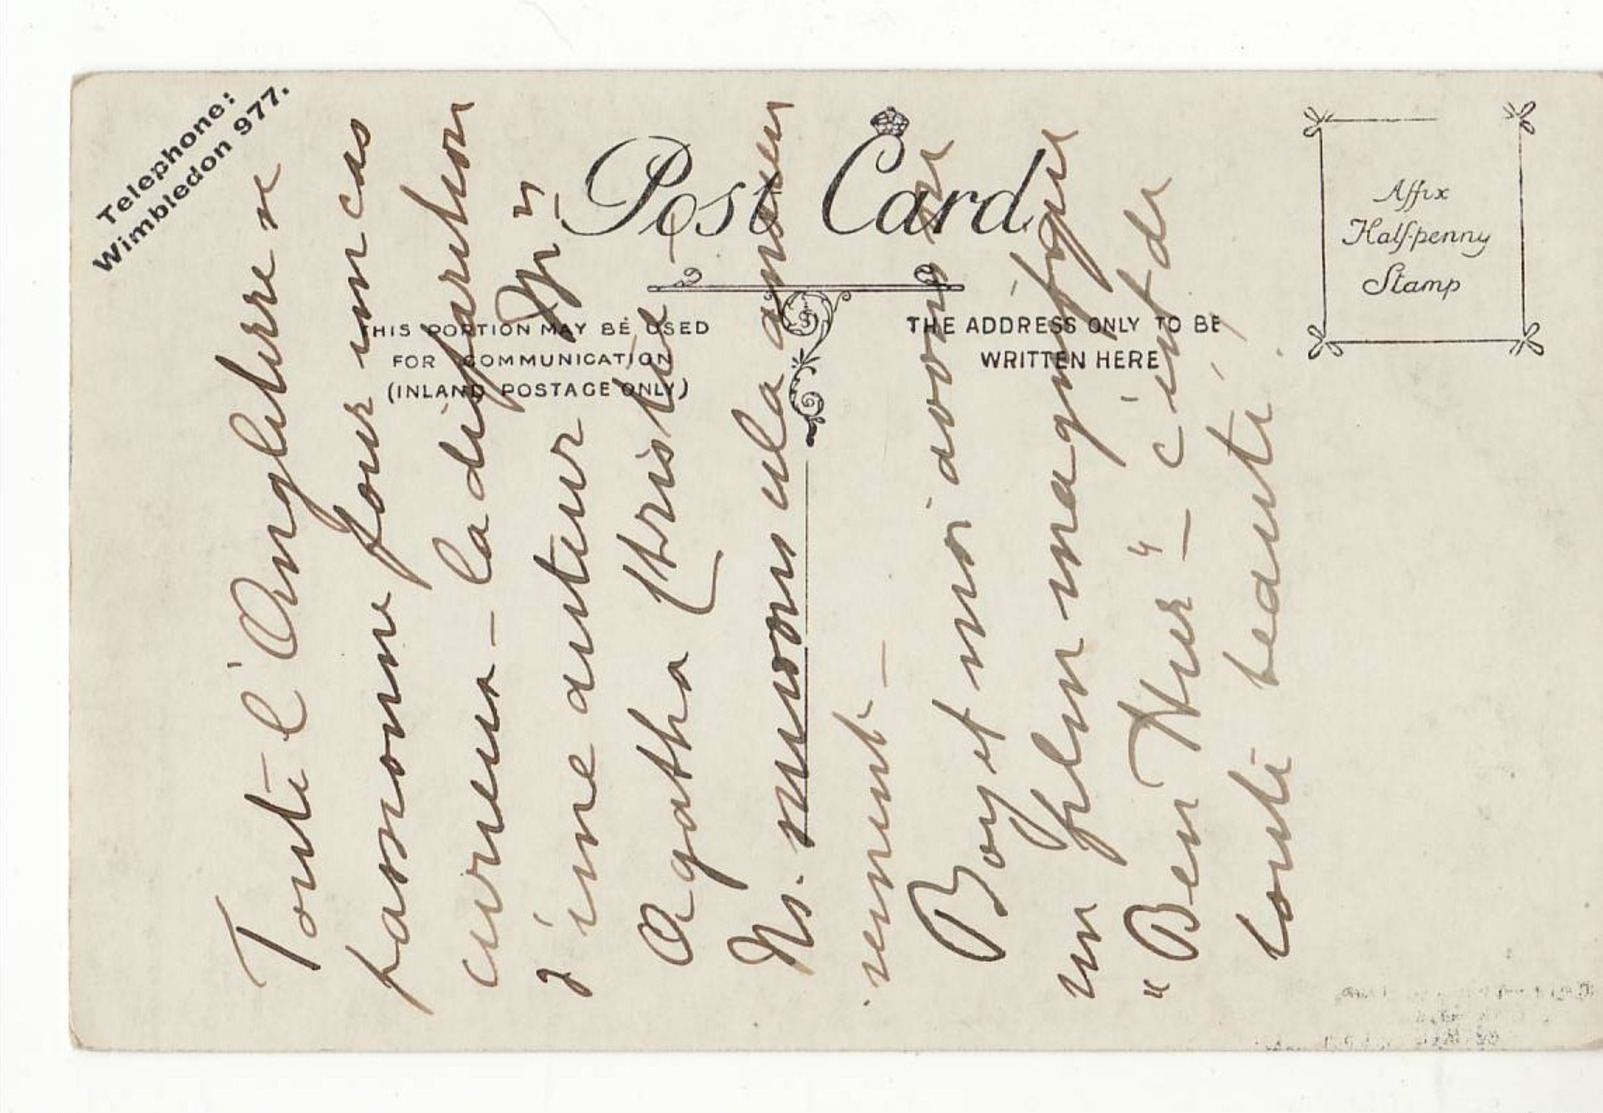 Telephone:
Wimbledon 977.
Post Card
THIS PORTION MAY BE USED
FOR COMMUNICATION
(INLAND POSTAGE ONLY)
THE ADDRESS ONLY TO BE
WRITTEN HERE
Affix
Half-penny
Stamp
Toute l'Angleterre se
passionne pour un cas
curieux – la disparition
d'une auteur Mrs
Agatha Christie –
Ns. suivons cela anxieu
sement –
Boy et moi avons vu
un film magnifique
"Ben Hur" – c'est de
toute beauté!